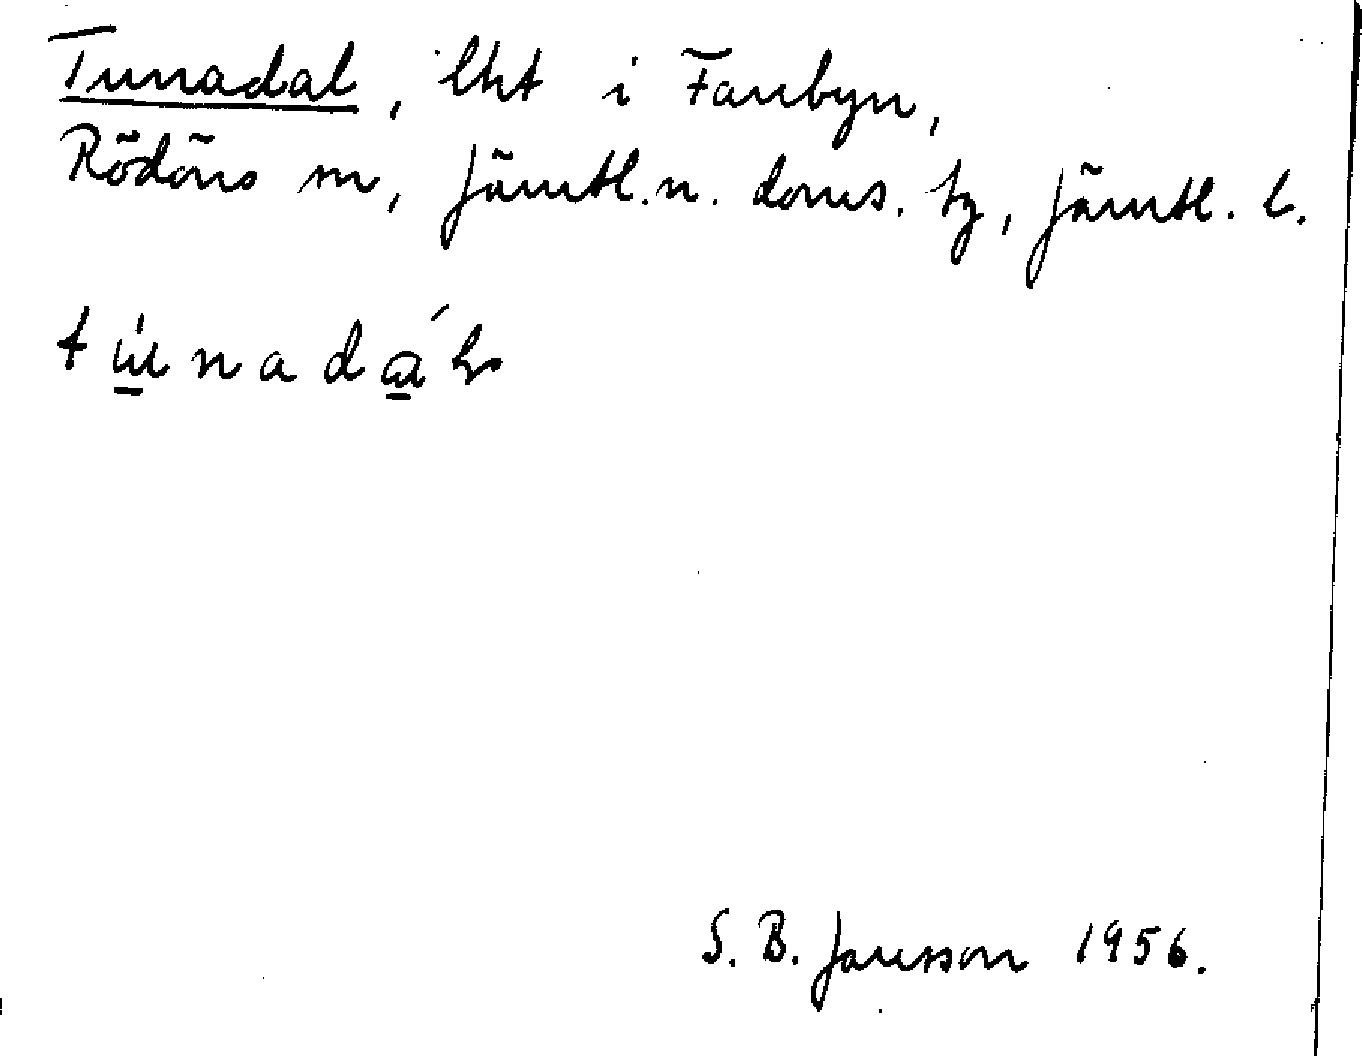 Tunadal, lht i Fanbyn,
Rödöns sn, Jämtl.n. doms. tg, Jämtl. l.
S. B. Jansson 1956.